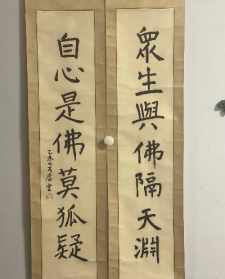 眾生與佛隔天淵
自心是佛莫狐疑